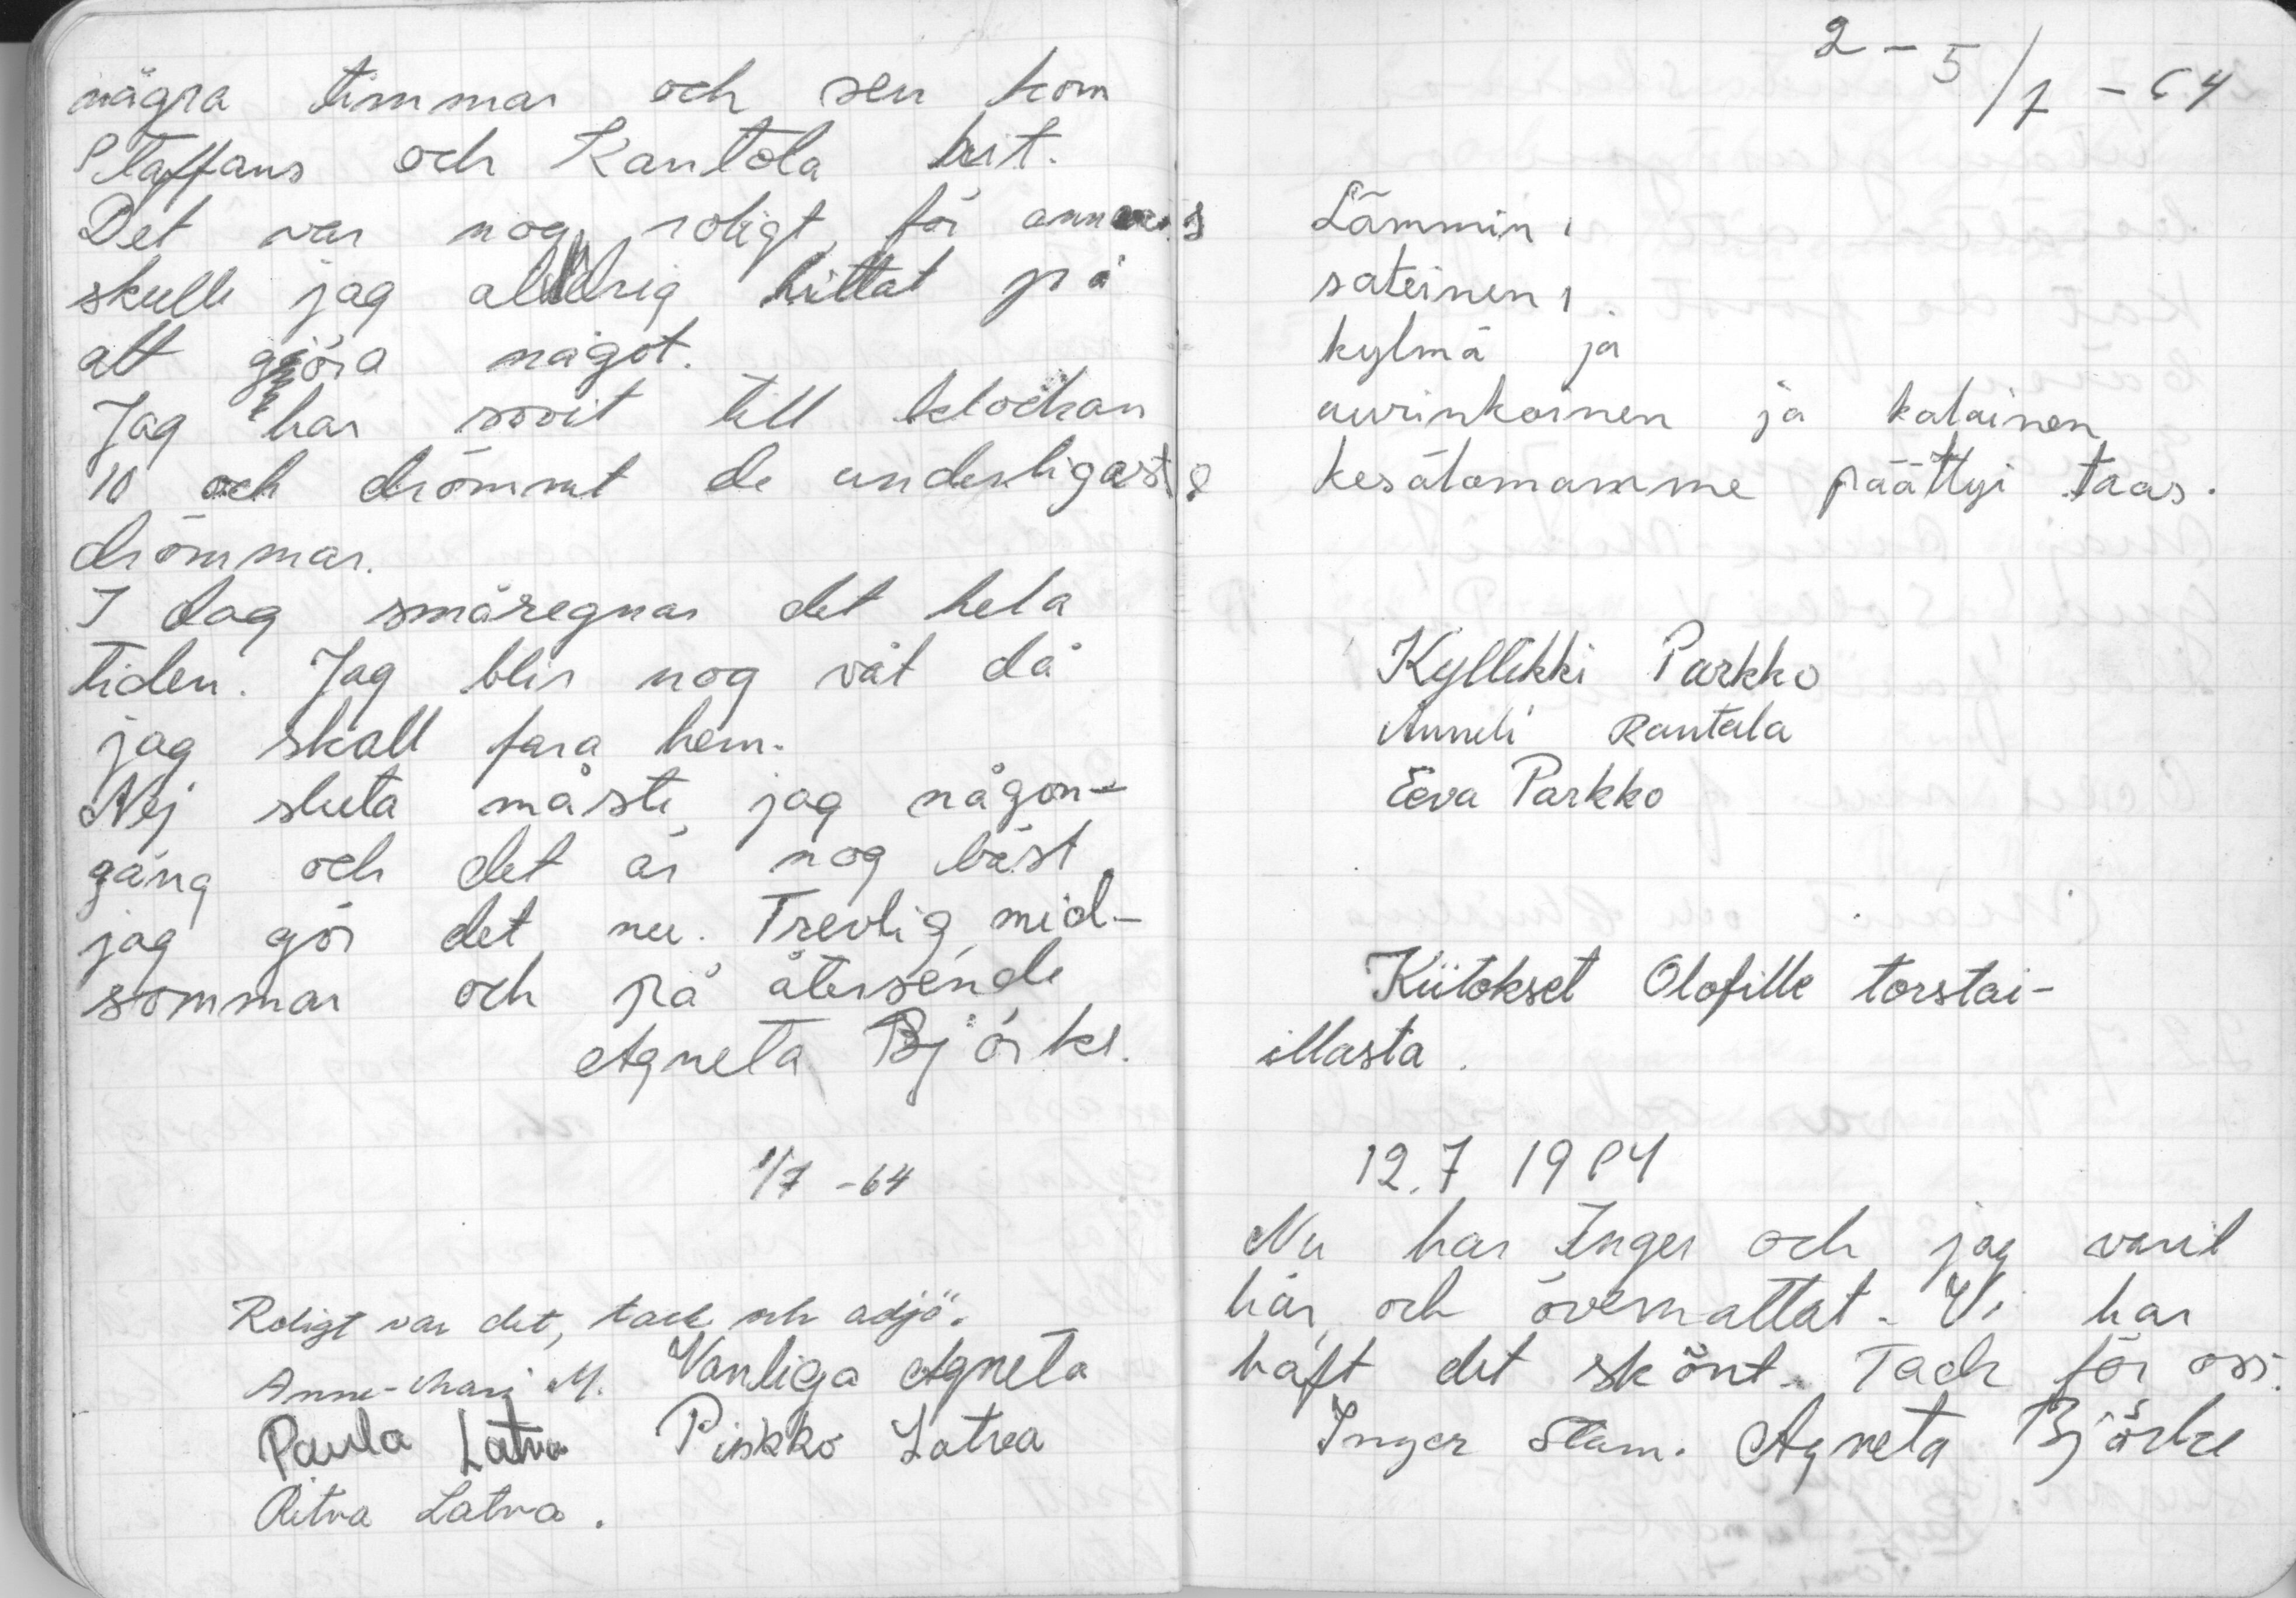 några timmar och sen kom
Staffans och Kantola hit.
Det var nog roligt för annars
skulle jag aldrig hittat på
att göra något.
Jag har sovit till klockan
10 och drömmt de underligaste
drömmar.
I dag småregnar det hela
tiden. Jag blir nog våt då
jag skall fara hem.
Nej sluta måste jag någon-
gång och det är nog bäst
jag gör det nu. Trevlig mid-
sommar och på återseende
Agneta Björkl.
1/7 -64
Roligt var det, tack och adjö.
Anne-Mari M. Vanliga Agneta
Paula Latva Pirkko Latva
Ritva Latva.
2-5/7-64
Lämmin,
sateinen,
kylmä ja
aurinkoinen ja kalainen
kesälomamme päättyi taas.
Kyllikki Parkko
Anneli Rantala
Eeva Parkko
Kiitokset Olofille torstai-
illasta.
12.7 1964
Nu har Inger och jag varit
här och övernattat. Vi har
haft det skönt. Tack för oss.
Inger Stam. Agneta